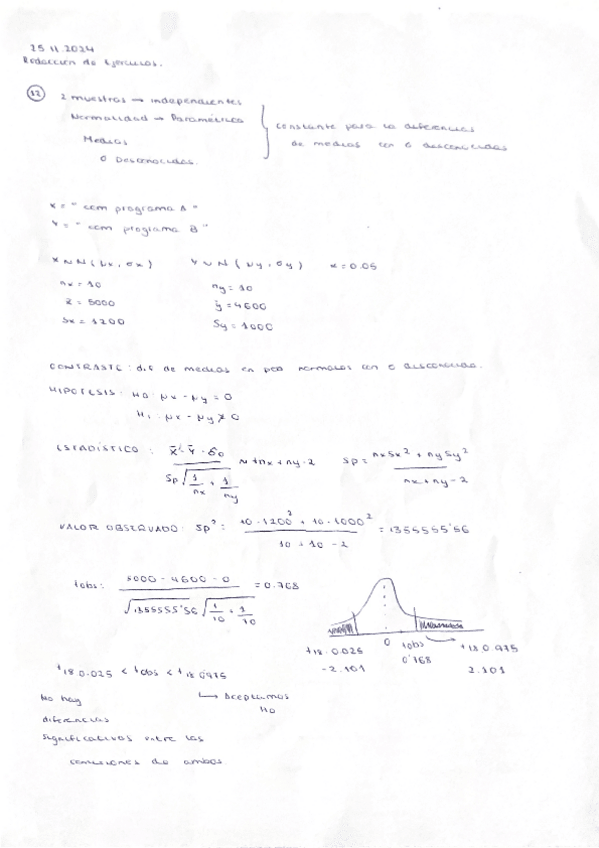 25 11.2024
Redacción de Ejercicios.
12
2 muestras → independientes
Normalidad → Paramétrica
Medias
σ Desconocidas.
constante para la diferencias
de medias con σ desconocidas
X = "com programa A"
Y = "com programa B"
X ~ N (μx, σx) Y ~ N (μy, σy) α = 0.05
nx = 10 ny = 10
x̄ = 5000 ȳ = 4600
Sx = 1200 Sy = 1000
CONTRASTE: dif de medias en pob normales con σ desconocida.
HIPOTESIS: H0: μx - μy = 0
H1: μx - μy ≠ 0
ESTADÍSTICO: x̄ - ȳ - δ0 / Sp √(1/nx + 1/ny) ~ t nx + ny - 2 Sp = nx Sx² + ny Sy² / nx + ny - 2
VALOR OBSERVADO: Sp² = 10 · 1200² + 10 · 1000² / 10 + 10 - 2 = 1355555'56
tobs: 5000 - 4600 - 0 / √1355555'56 √(1/10 + 1/10) = 0.768
t18 0.025 0 tobs t18 0.975
-2.101 0'768 2.101
t18 0.025 < tobs < t18 0.975
↳ Aceptamos
H0
No hay
diferencias
significativas entre las
comisiones de ambos.